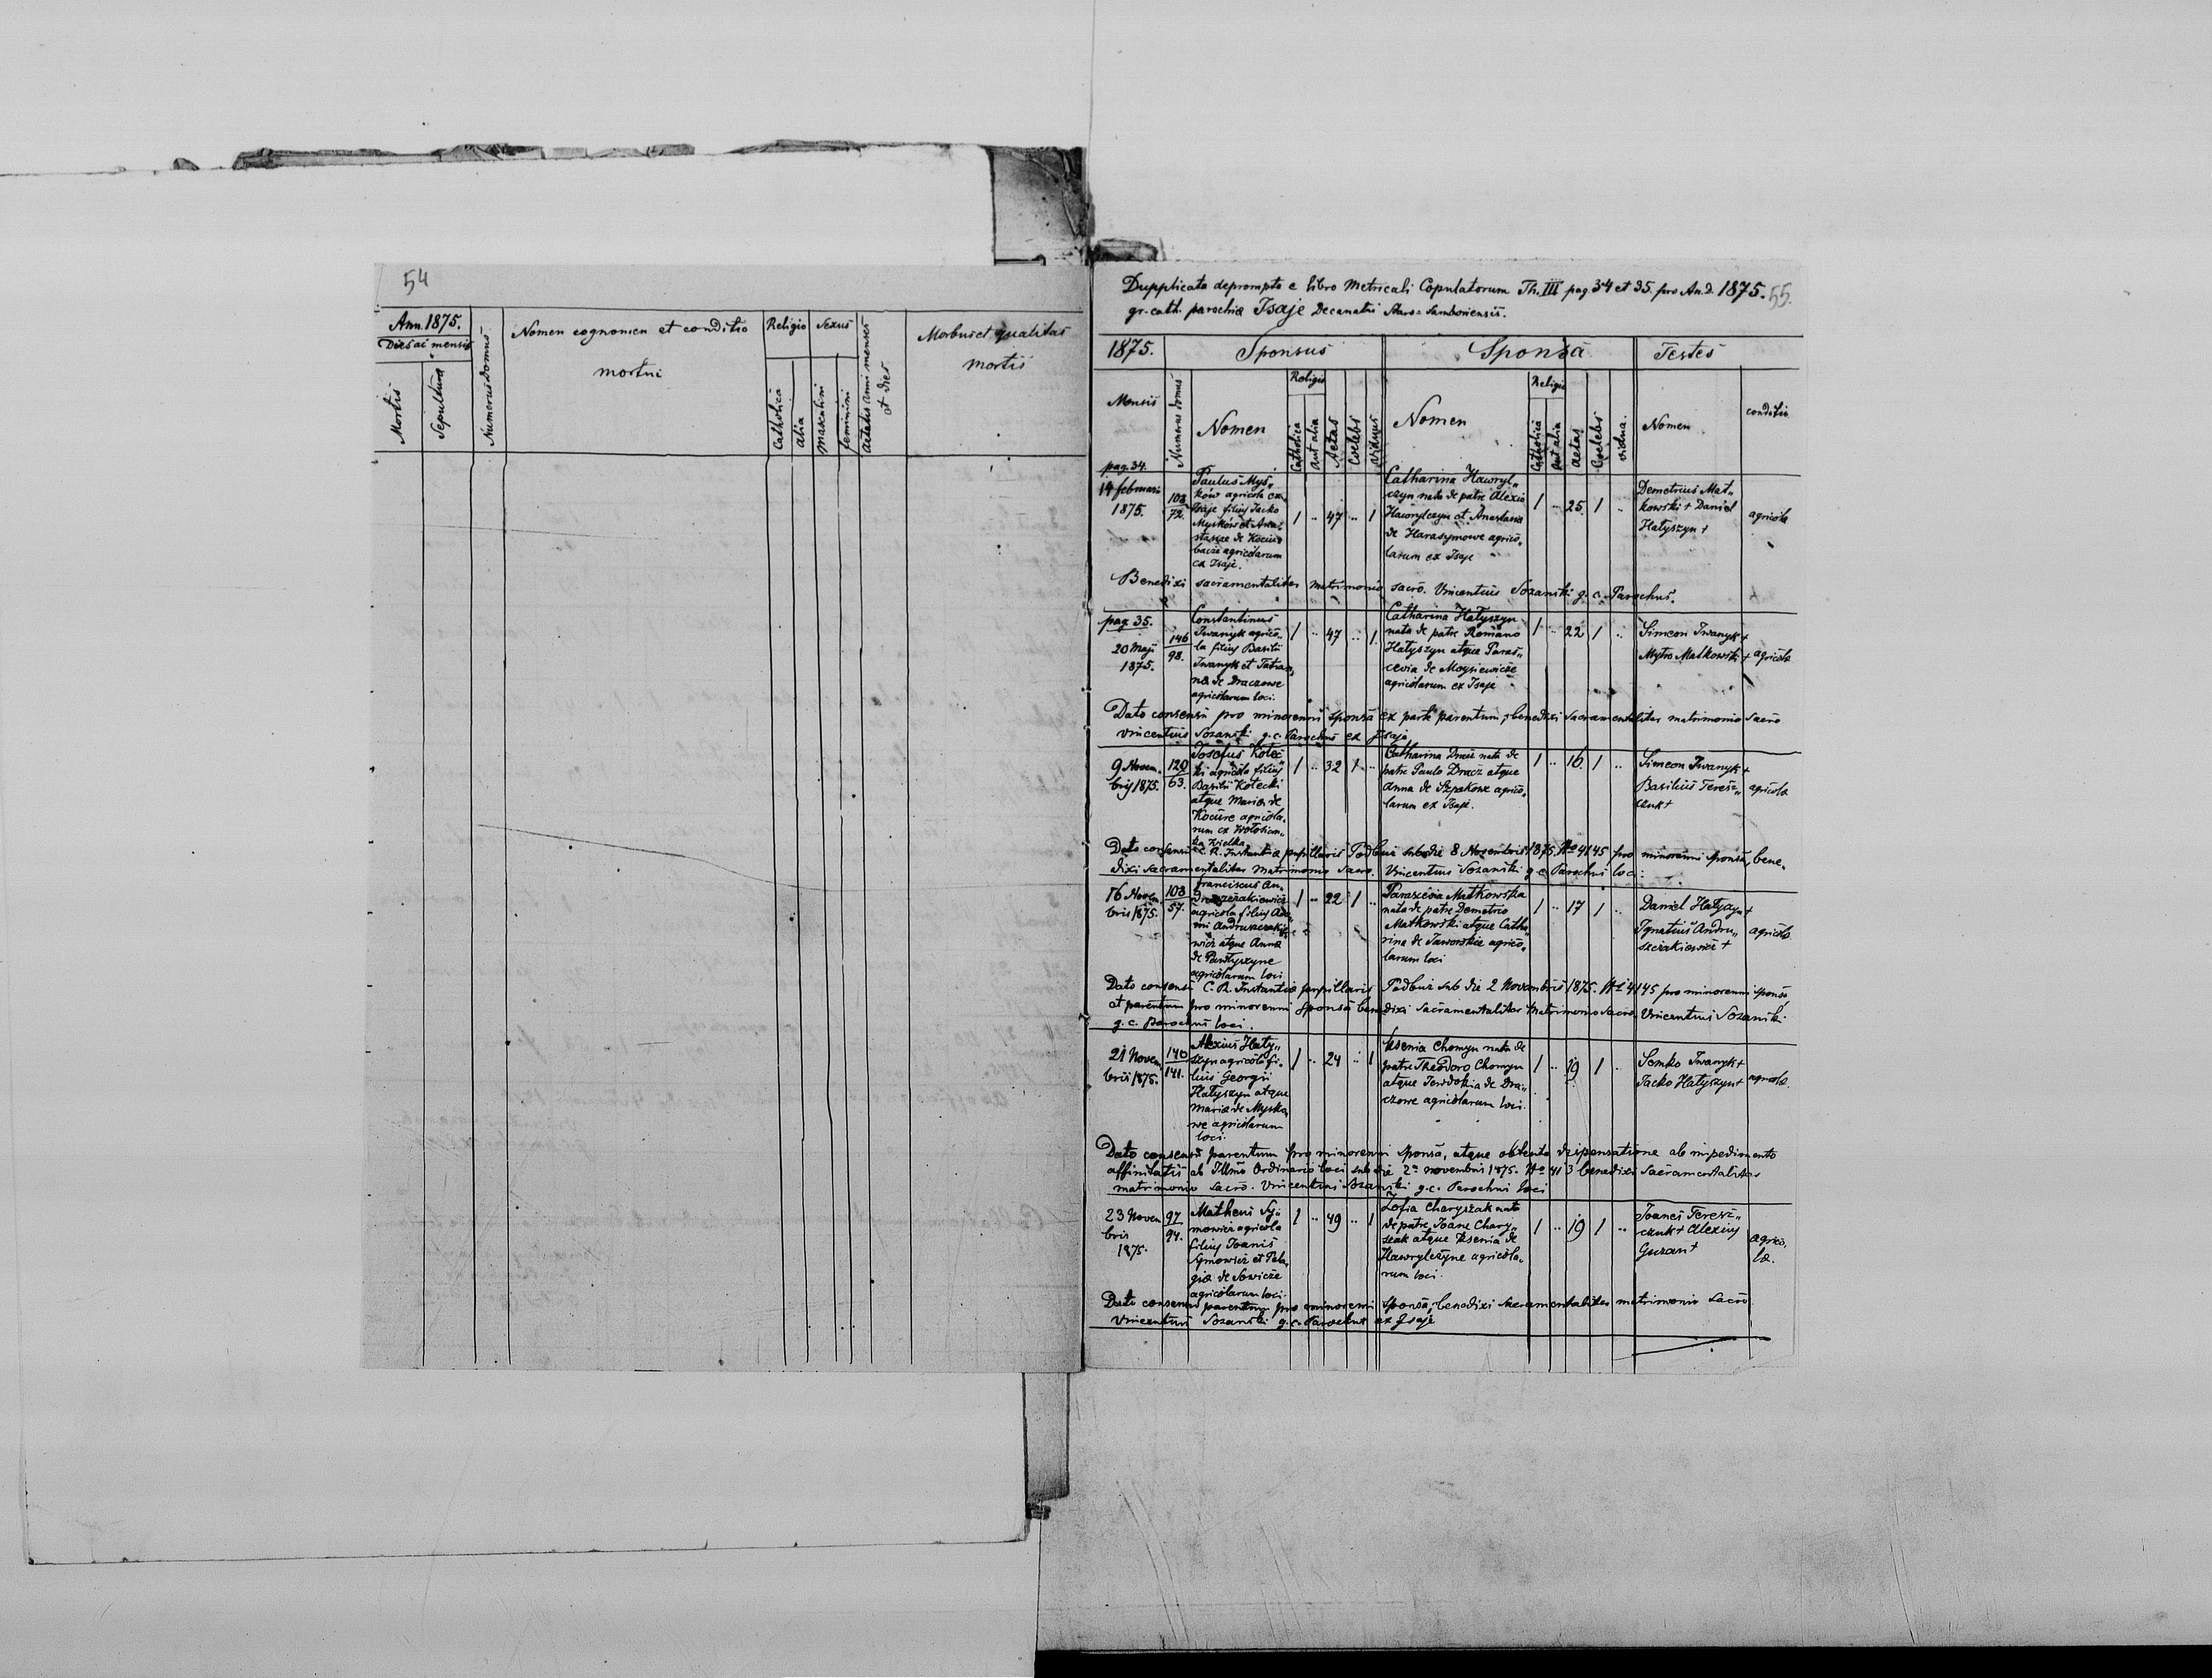 54
Ann. 1875.
Dies ac mensis
Mortis
Sepultura
Numerus domus
Nomen cognomen et conditio
mortui
Religio
Catholica
alia
Sexus
masculini
feminini
aetatis anni menses
et dies
Morbus et qualitas
mortis
Dupplicata deprompta e libro Metricali Copulatorum Th. III pag 34 et 35. pro An. d. 1875. 55.
gr. cath. parochia Isaje Decanatus Staro=Samboriensis.
1875.
Sponsus
Sponsa
Testes
Mensis
Numerus domus
Nomen
Religio
Catholica
aut alia
Aetas
Coelebs
viduus
Nomen
Religio
Catholica
aut alia
aetas
Coelebs
vidua.
Nomen
conditio
pag. 34.
14 februari
1875.
103
72.
Paulus Mys„
ków agricola ex
Isaje filius Jacko
Myskow et Ana„
stasiae de Kociu
bacze agricolarum
ex Isaje.
1 .. 47 .. 1
Catharina Hawryl„
czyn nata de patre Alexio
Hawrylczyn et Anastasia
de Harasymowe agrico„
larum ex Isaje
1 .. 25. 1 ..
Demetrius Mat„
kowski + Daniel
Hatyszyn +
agricola
Benedixi sacramentalitas matrimonio sacro. Vincentius Sozanski g. c. Parochus.
pag 35.
20 Maji
1875.
146
98.
Constantinus
Iwanyk agrico„
la filius Basilii
Iwanyk et Tatian„
na de Draczowe
agricolarum loci.
1 .. 47 .. 1.
Catharina Hatyszyn
nata de patre Romano
Hatyszyn atque Paras„
cevia de Moysiewicze
agricolarum ex Isaje
1 .. 22 1 ..
Simeon Iwanyk +
Mytro Matkowski +
agricola
Dato consensu pro minorenni sponsa ex parte parentum, benedixi sacramentalitas matrimonio sacro
Vincentius Sozanski g.c. Parochus ex Isaje
9 Novem.
bris 1875.
120
63.
Josefus Kotec„
ki agricola filius
Basilii Kotecki
atque Maria de
Kociure agricola„
rum ex Wolosian„
ka Wielka
1 .. 32 1 ..
Catharina Dracz nata de
patre Paulo Dracz atque
Anna de Szpakowe agrico„
larum ex Isaje.
1 .. 16. 1 ..
Simeon Iwanyk +
Basilius Teresz„
czuk +
agricola
Dato consensu C. R. Instantia pupillaris Podbuż sub die 8 Novembris 1875 No 4145 pro minorenni sponsa, bene„
dixi sacramentalitas matrimonio sacro. Vincentius Sozanski g c Parochus loci:
16 Novem
bris 1875.
103
57.
Franciscus An„
druszczakiewicz
agricola filius Ada„
mi Andruszczakie„
wicz atque Anna
de Pawlyszyne
agricolarum loci
1 .. 22 1 ..
Parascevia Matkowska
nata de patre Demetrio
Matkowski atque Catha„
rina de Jaworskie agrico„
larum loci
1 .. 17 1 ..
Daniel Hatyszyn +
Ignatius Andru„
szczakiewicz +
agricola
Dato consensu C. R. Instantia pupillaris Podbuż sub die 2 Novembris 1875. No 4145 pro minorenni sponso,
et parentum pro minorenni sponsa benedixi sacramentaliter matrimonio sacro. Vincentius Sozanski
g. c. Parochus loci.
21 Novem
bris 1875.
140
141.
Alexius Haty„
szyn agricola fi„
lius Georgii
Hatyszyn atque
Maria de Mysko
we agricolarum
loci.
1 .. 24 .. 1
Ksenia Chomyn nata de
patre Theodoro Chomyn
atque Jewdokia de Dra„
czowe agricolarum loci.
1 .. 19 1 ..
Semko Iwanyk +
Jacko Hatyszyn +
agricola.
Dato consensu parentum pro minorenni sponsa, atque obtenta dispensatione ab impedimento
affinitatis ab Illmo Ordinario loci sub die 2a novembris 1875. No 41 3 benedixi sacramentalitas
matrimonio sacro. Vincentius Sozanski g.c. Parochus loci
23 Novem
bris
1875.
97
94.
Matheus Sy„
mowicz agricola
filius Joanis
Symowicz et Pela„
gia de Sowicze
agricolarum loci.
1 .. 49 .. 1
Zofia Charyszak nata
de patre Joane Chary„
szak atque Ksenia de
Hawrylczyne agricola„
rum loci.
1 .. 19 1 ..
Joanes Teresz„
czuk + Alexius
Guzan +
agrico„
la.
Dato consensu parentum pro minorenni sponsa, benedixi sacramentalitas matrimonio sacro
Vincentius Sozanski g.c. Parochus ex Isaje